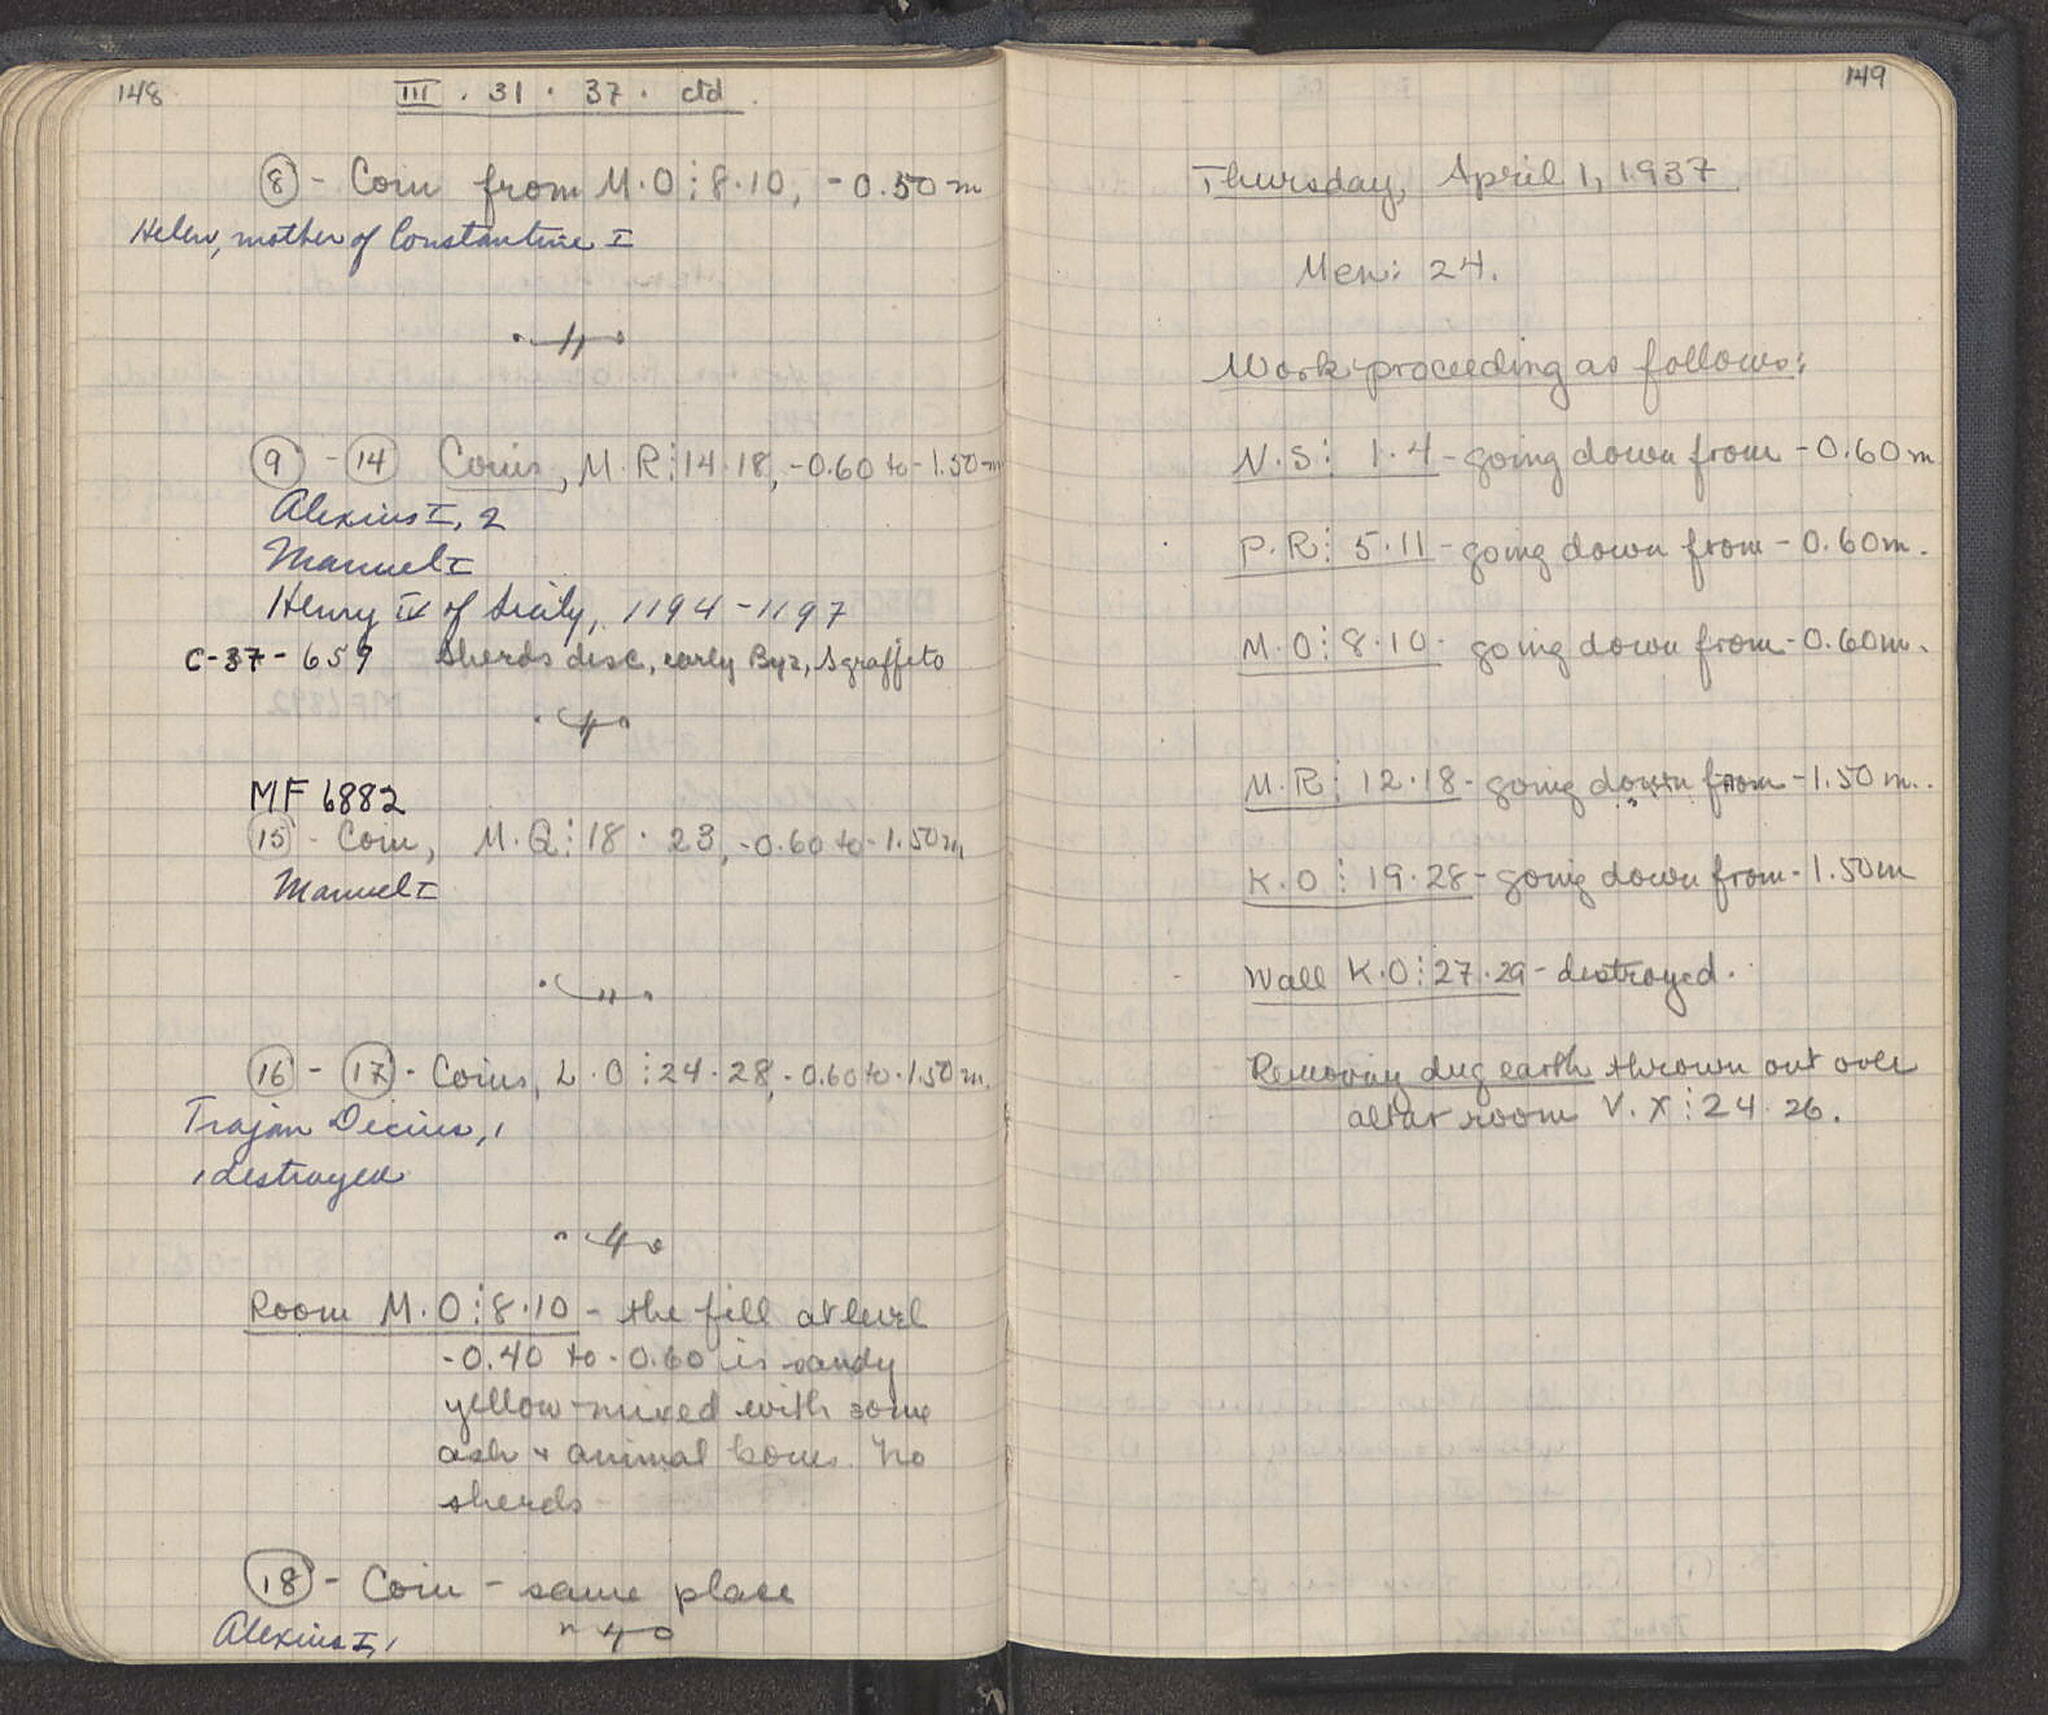 148
III . 31 . 37 . ctd.
(8) - Coin from M.O⋮8.10, -0.50 m
Helen, mother of Constantine I
(9) - (14) Coins, M.R⋮14.18, -0.60 to -1.50 m
Alexius I, 2
Manuel I
Henry IV of Sicily, 1194-1197
C-37-659 sherds disc, early Byz, Sgraffito
MF 6882
(15) - Coin, M.Q⋮18.23, -0.60 to -1.50 m
Manuel I
(16) - (17) - Coins, L.O⋮24.28, -0.60 to -1.50 m.
Trajan Decius, 1
1 destroyed
Room M.O⋮8.10 - the fill at level
-0.40 to -0.60 is sandy
yellow mixed with some
ash + animal bones. No
sherds
(18) - Coin - same place
Alexius I, 1
149
Thursday, April 1, 1937
Men: 24.
Work proceeding as follows:
N.S⋮ 1.4 - going down from -0.60 m
P.R⋮ 5.11 - going down from -0.60 m.
M.O⋮8.10 - going down from -0.60 m.
M.R⋮ 12.18 - going down from -1.50 m.
K.O⋮ 19.28 - going down from -1.50 m
Wall K.O⋮27.29 - destroyed.
Removing dug earth thrown out over
altar room V.X⋮24.26.